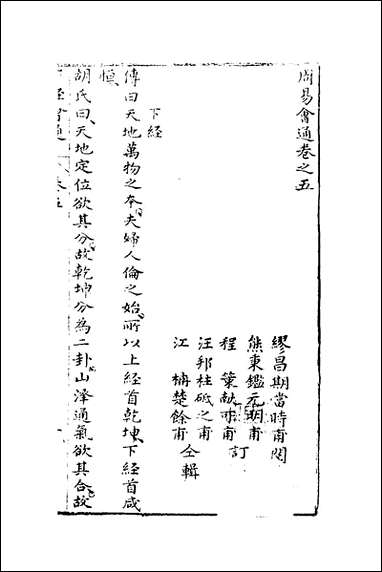 周易會通卷之五
繆昌期當時甫閱
熊東鑑元明甫
訂
程策獻可甫
汪邦柱砥之甫
仝輯
江柟楚餘甫
下經
傳曰天地萬物之本夫婦人倫之始所以上經首乾坤下經首咸
恒
胡氏曰天地定位欲其分故乾坤分為二卦山澤通氣欲其合故